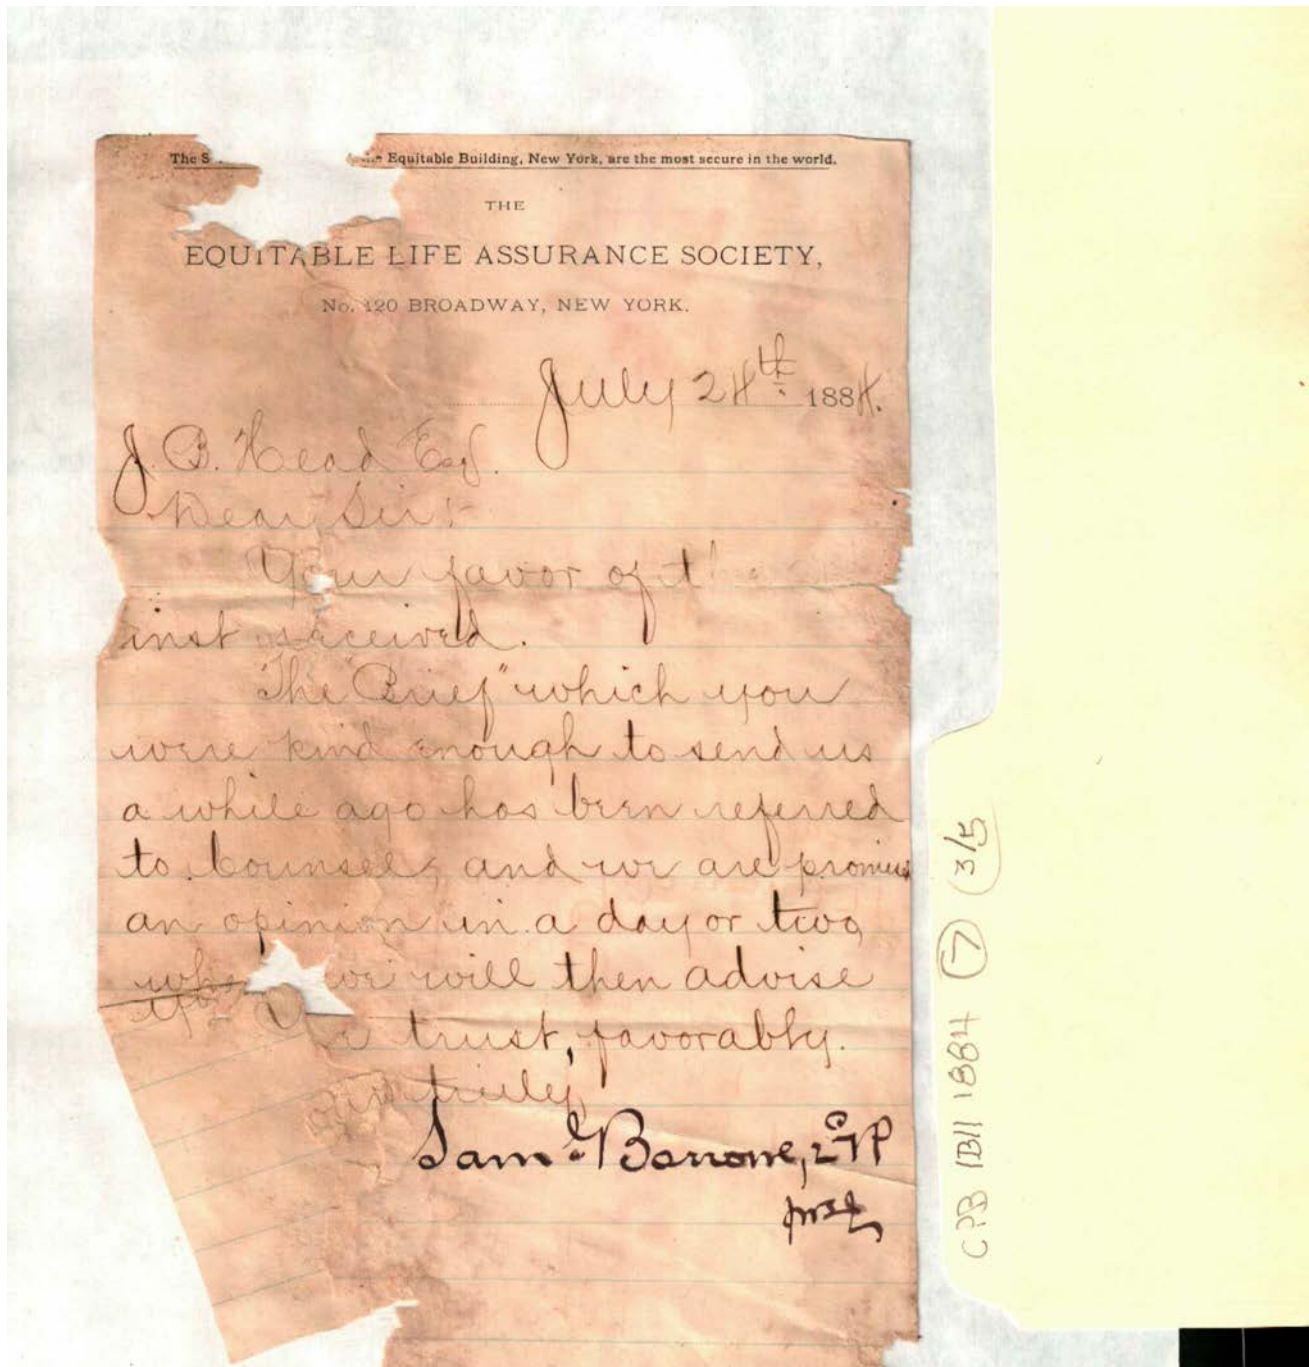 The S
Equitable Building, New York, are the most secure in the world.
THE
EQUITABLE LIFE ASSURANCE SOCIETY,
No. 120 BROADWAY, NEW YORK.
July 24th 1884.
J. B. Head Esq.
Dear Sir:-
Your favor of the
inst received.
The "Brief" which you
were kind enough to send us
a while ago has been referred
to Counsel, and we are promised
an opinion in a day or two,
whe we will then advise
trust, favorably.
truly
Sam Borrowe, 2 VP
CPB 1B11 1884 7 3/5